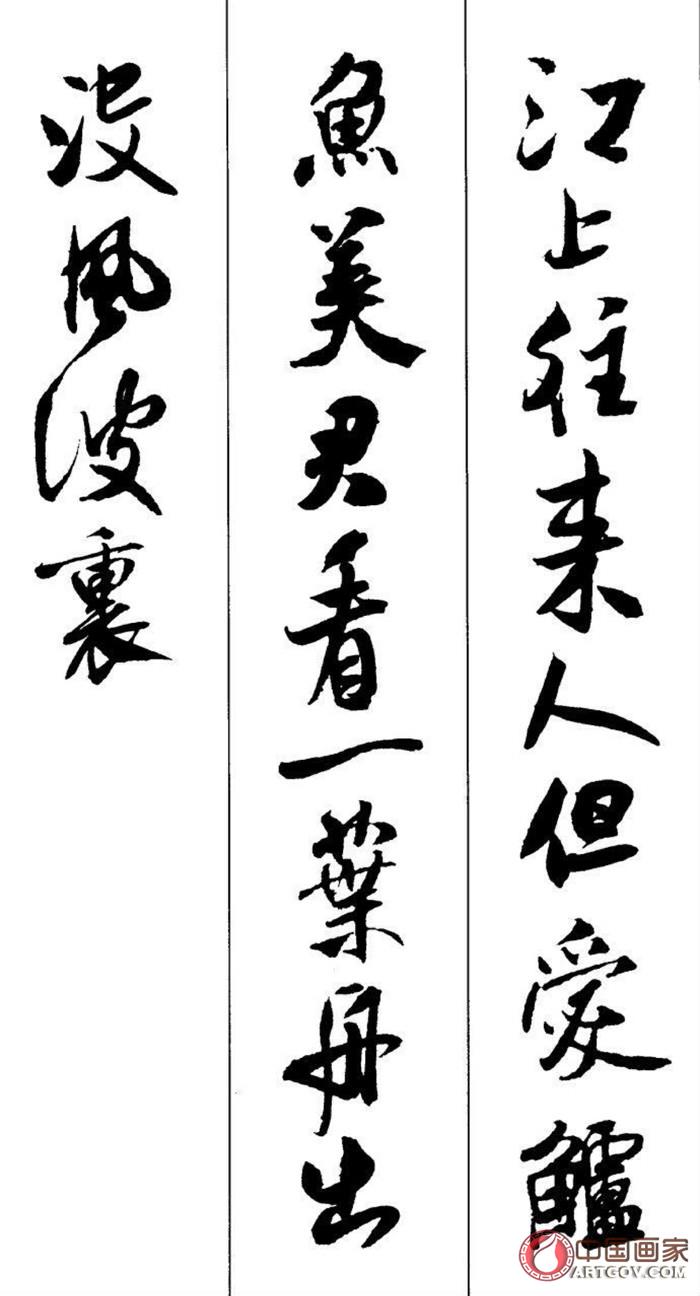 江上往来人但愛鱸
魚美君看一葉舟出
没風波裏
中国画家
ARTGOV.COM